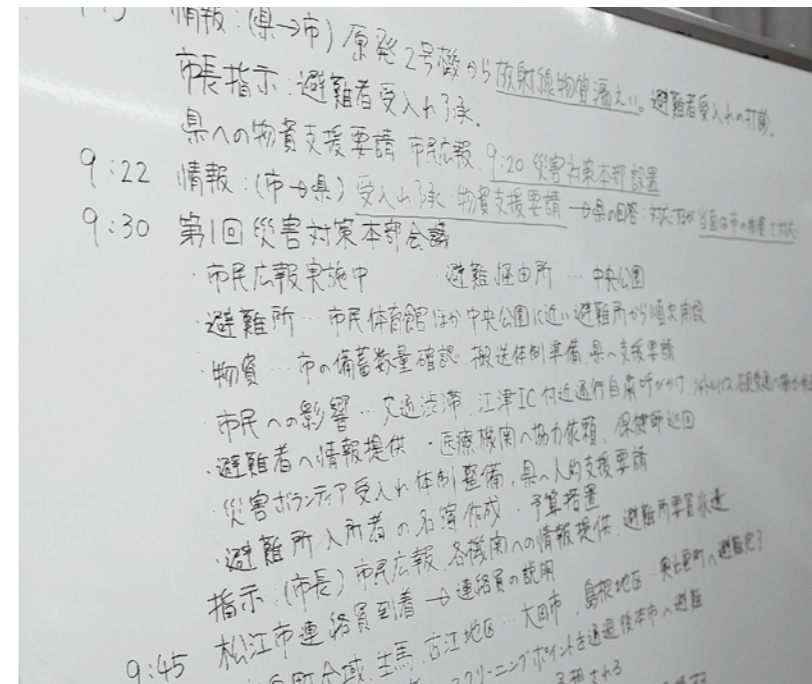 情報:(県→市)原発2号機から放射線物質漏えい。避難者受入れの打診。
市長指示:避難者受入れ了承。
県への物資支援要請 市民広報 9:20 災害対策本部設置
9:22 情報:(市→県)受入れ了承・物資支援要請 →県の回答:対応するが当面は市の物資で対応
9:30 第1回災害対策本部会議
・市民広報実施中 避難経由所…中央公園
・避難所…市民体育館ほか中央公園に近い避難所から順次開設
・物資…市の備蓄数量確認、搬送体制準備、県へ支援要請
市民への影響…交通渋滞、江津IC付近通行自粛呼びかけ、
・避難者へ情報提供・医療機関へ協力依頼、保健師巡回
・災害ボランティア受入れ体制整備、県へ人的支援要請
・避難所入所者の名簿作成・予算措置
指示:(市長)市民広報、各機関への情報提供、避難所要員派遣
9:45 松江市連絡員到着→連絡員の説明
全域、生馬、古江地区…大田市、島根地区…奥出雲町へ避難完了
スクリーニングポイントを通過後本市へ避難
予想される